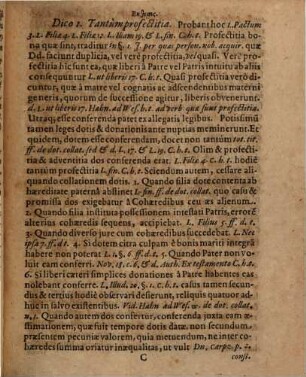 Dico 1. Tantùm profectitia. Probant hoc l. Pactum
3. L. Filiæ 4. L. Filiæ 12. L. illam 19. & L. fin. C. h. t. Profectitia bo-
na quæ sint, traditur
facimt duplicia, vel verè profectitia, vel quasi. Verè pro-
fectitia dicuntur ea, quæ liberi à Patre vel Patris intuitu ab aliis
consequuntur L. ut liberis 17. C. h. t. Quasi profectitia verò di-
cuntur, quæ à matre vel cognatis ac adscendentibus materni
generis, quorum de successione agitur, liberis obvenerunt
d. L. ut liberis 17. Hahn. ad Wes. h. t.
Utraq; esse conferenda patet ex allegatis legibus. Potissimùm
tamen leges dotis & donationis ante nuptias meminerunt. Et
quidem dotem esse conferendam, docet non tantùm tot. tit.
ff. de dot. collat. sed & d. L. 17. & L. 19. C. h. t. Olim & profe-
ctitia & adventitia dos conferenda erat. L. Filiæ 4. C. h. t. hodiè
tantùm profectitia L. fin. C. h. t. Sciendum autem, cessare ali-
quando collationem dotis. 1. Quando filia dote contenta ab
hæreditate paterna abstinet L. fin. ff. de dot. collat. quo casu &
promissa dos exigebatur à Cohæredibus ceu æs alienum...
2. Quando filia instituta possessionem intestati Patris, errore
alterius cohæredis sequens, accipiebat. L. Filius 5. ff. d. t.
3. Quando diverso jure cum cohæredibus succedebat. L. Nec
ipsa 7. ff. d. t. 4. Si dotem citra culpam è bonis mariti integrã
habere non potest L. 1. §. 6. ff. d. t. 5. Quando Pater non vo-
luit eam conferri. Nov. 18. c. 6. & d. auth. Ex testamento C. h. t.
6. Si liberi cæteri simplices donationes à Patre habentes eas
nolebant conferre. L. Illud. 20. §. 1. C. h. t. casus tamen secun-
dus & tertius hodiè observari desierunt, reliquis quatuor ad-
huc in salvo existentibus. Vid. Hahn ad Wes. de dot. collat.
n. 1. Quando autem dos confertur, conferenda juxta eam æ-
stimationem, quæ fuit tempore dotis datæ, non secundùm
præsentem pecuniæ valorem, quia metuendum, ne inter co-
hæredes summa oriatur inæqualitas, ut vult Dn. Carpz. p. 2.
C
consi.